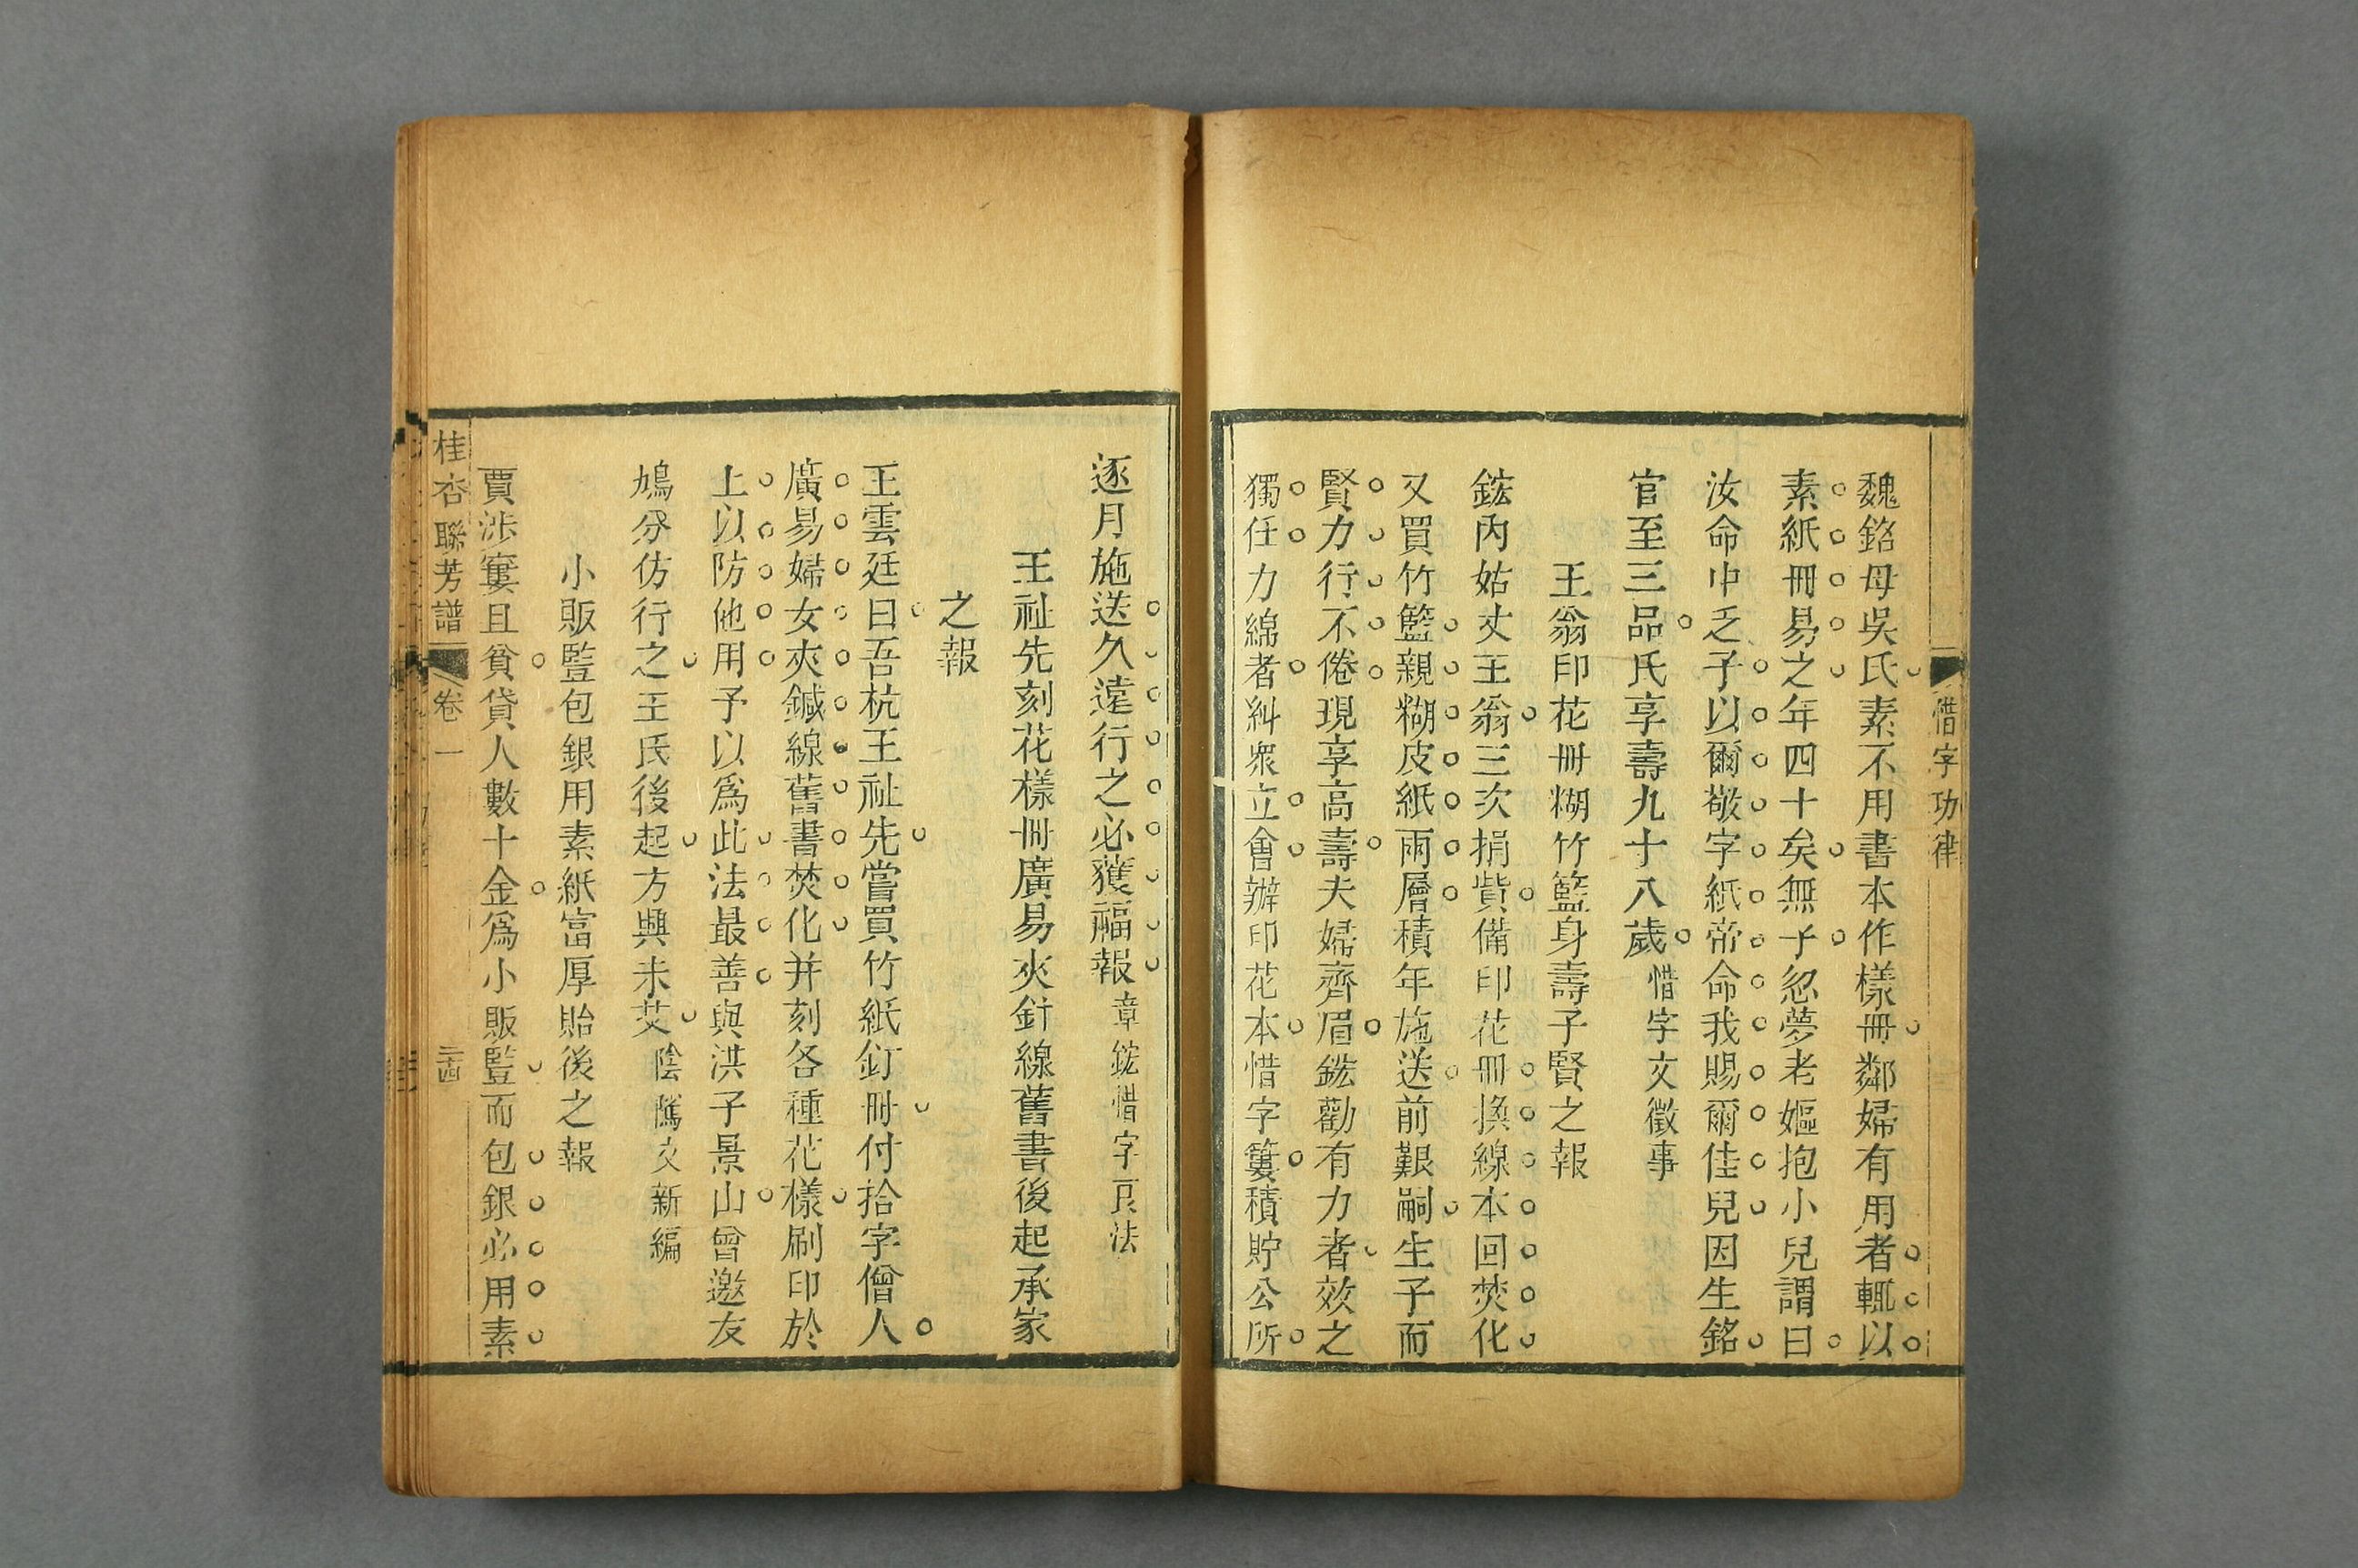 惜字功律
魏銘母吳氏素不用書本作樣冊鄰婦有用者輒以
素紙冊易之年四十矣無子忽夢老嫗抱小兒謂曰
汝命中乏子以爾敬字紙帝命我賜爾佳兒因生銘
官至三品氏享壽九十八歲惜字文徵事
王翁印花冊糊竹籃身壽子賢之報
鋐內姑丈王翁三次捐貲備印花冊換線本回焚化
又買竹籃親糊皮紙兩層積年施送前艱嗣生子而
賢力行不倦現享高壽夫婦齊眉鋐勸有力者效之
獨任力綿者糾眾立會辦印花本惜字簍積貯公所
逐月施送久遠行之必獲福報章鋐惜字良法
王祉先刻花樣冊廣易夾針線舊書後起承家
之報
王雲廷曰吾杭王祉先嘗買竹紙釘冊付拾字僧人
廣易婦女夾鍼線舊書焚化并刻各種花樣刷印於
上以防他用予以爲此法最善與洪子景山曾邀友
鳩分仿行之王氏後起方興未艾陰騭文新編
小販監包銀用素紙富厚貽後之報
賈涉窶且貧貸人數十金爲小販監而包銀必用素
桂杏聯芳譜 卷一 二十四